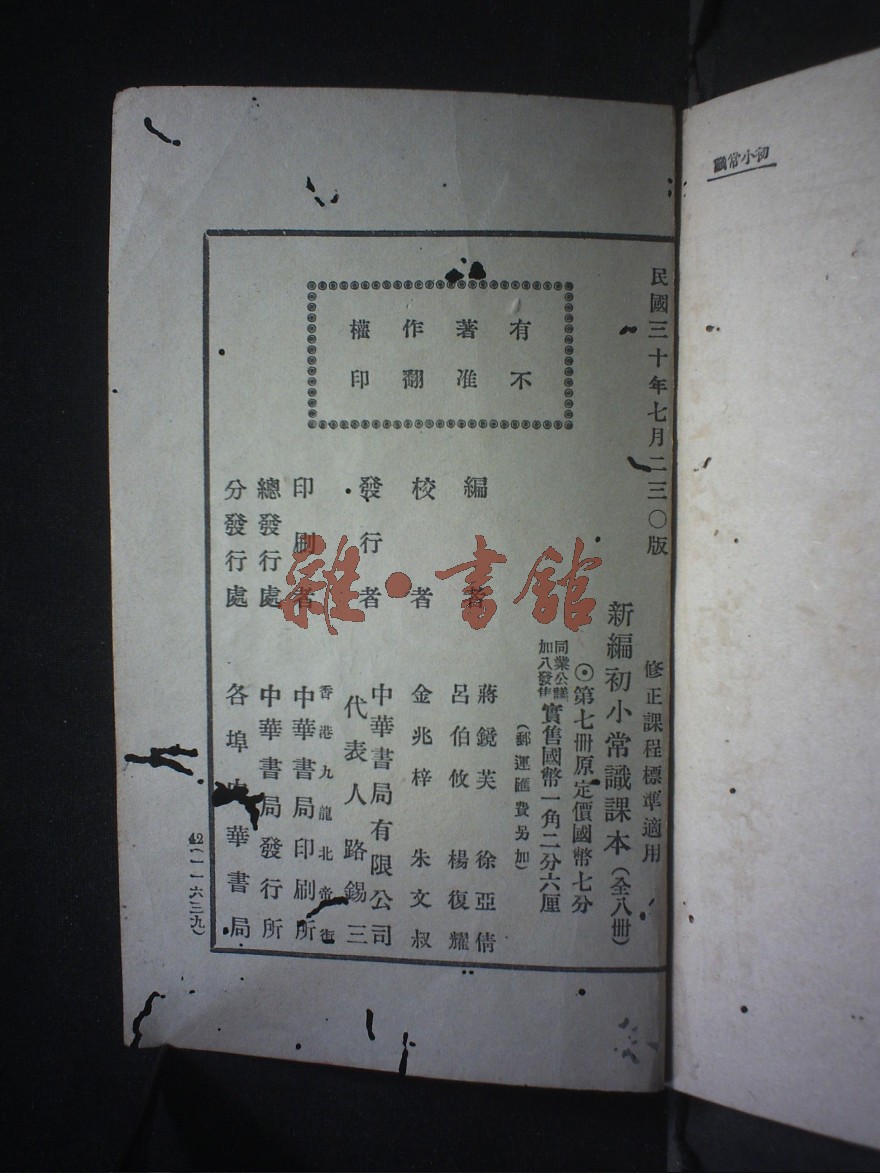 初小常識
民國三十年七月二三〇版
修正課程標準適用
新編初小常識課本(全八冊)
⊙第七冊原定價國幣七分
同業公議
加八發售
實售國幣一角二分六厘
(郵運匯費另加)
有著作權
不准翻印
編者 蔣鏡芙 徐亞倩
呂伯攸 楊復耀
校者 金兆梓 朱文叔
發行者 中華書局有限公司
代表人路錫三
印刷者 香港九龍北帝街
中華書局印刷所
總發行處 中華書局發行所
分發行處 各埠中華書局
42(一一六三九)
雜·書館